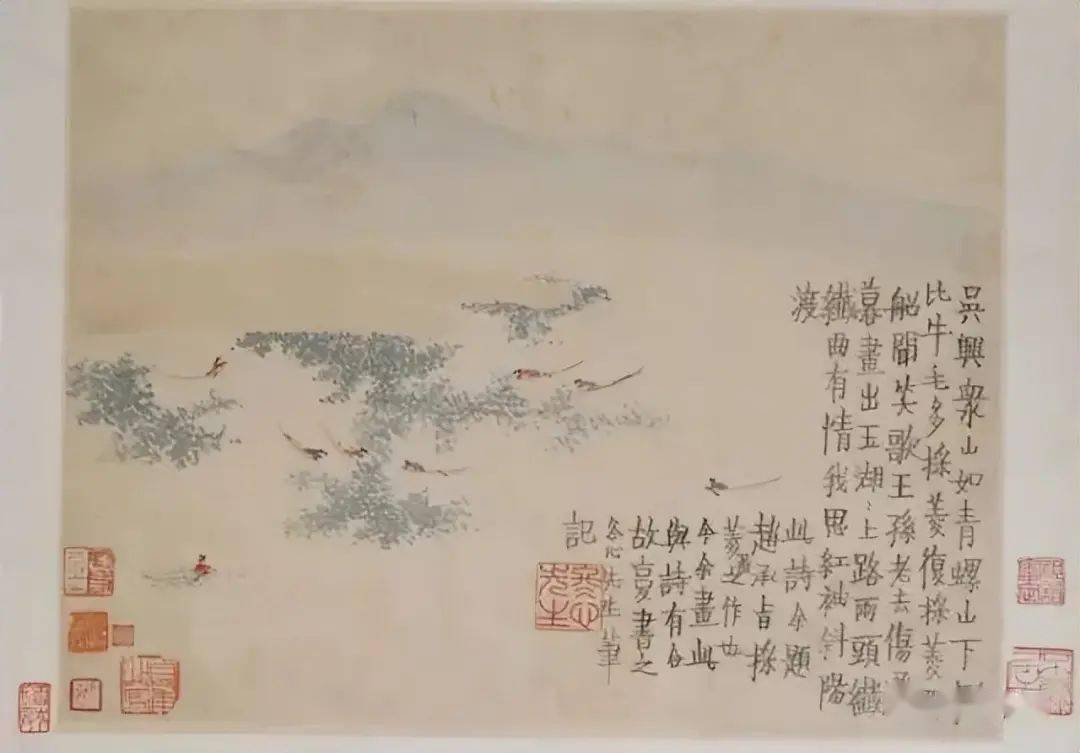 吳興衆山如青螺山下
比牛毛多採菱復採菱
船聞笑歌王孫老去傷
暮畫出玉湖〻上路兩頭纖
纖曲有情我思紅袖斜陽
渡
此詩余題
趙承旨採
菱圖之作也
今余畫此
與詩有合
故更書之
先生筆
記